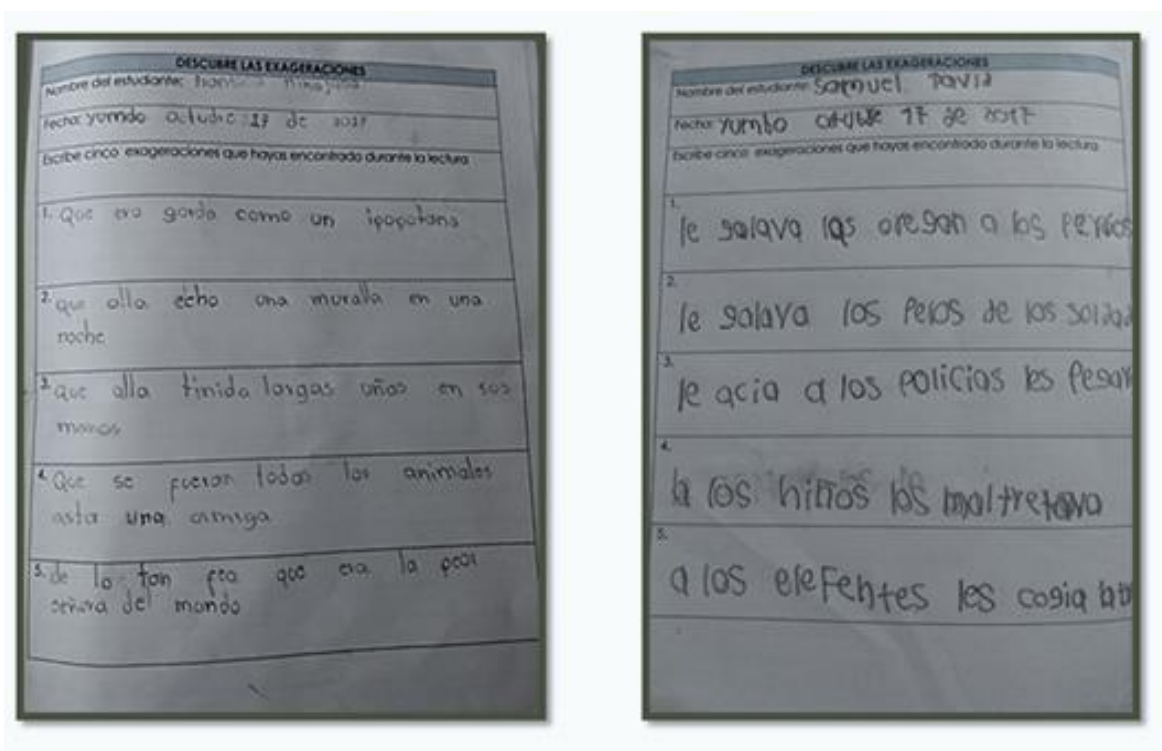 DESCUBRE LAS EXAGERACIONES
Nombre del estudiante:
Fecha: yumdo octudre 17 de 2017
Escribe cinco exageraciones que hayas encontrado durante la lectura
1. Que era gorda como un ipopotano
2. que alla echo una muralla en una
noche
3. que alla tinido largas uñas en sus
manos
4. Que se fueron todos los animales
asta una amiga
5. de lo tan fea que era la peor
señora del mundo
DESCUBRE LAS EXAGERACIONES
Nombre del estudiante: Samuel David
Fecha: yumbo 17 de 2017
Escribe cinco exageraciones que hayas encontrado durante la lectura
1.
le galava las oregan a los perros
2.
le galava los pelos de los soldad
3.
le acia a los policias les pegar
4.
a los niños los maltretava
5.
a los elefentes les cogia